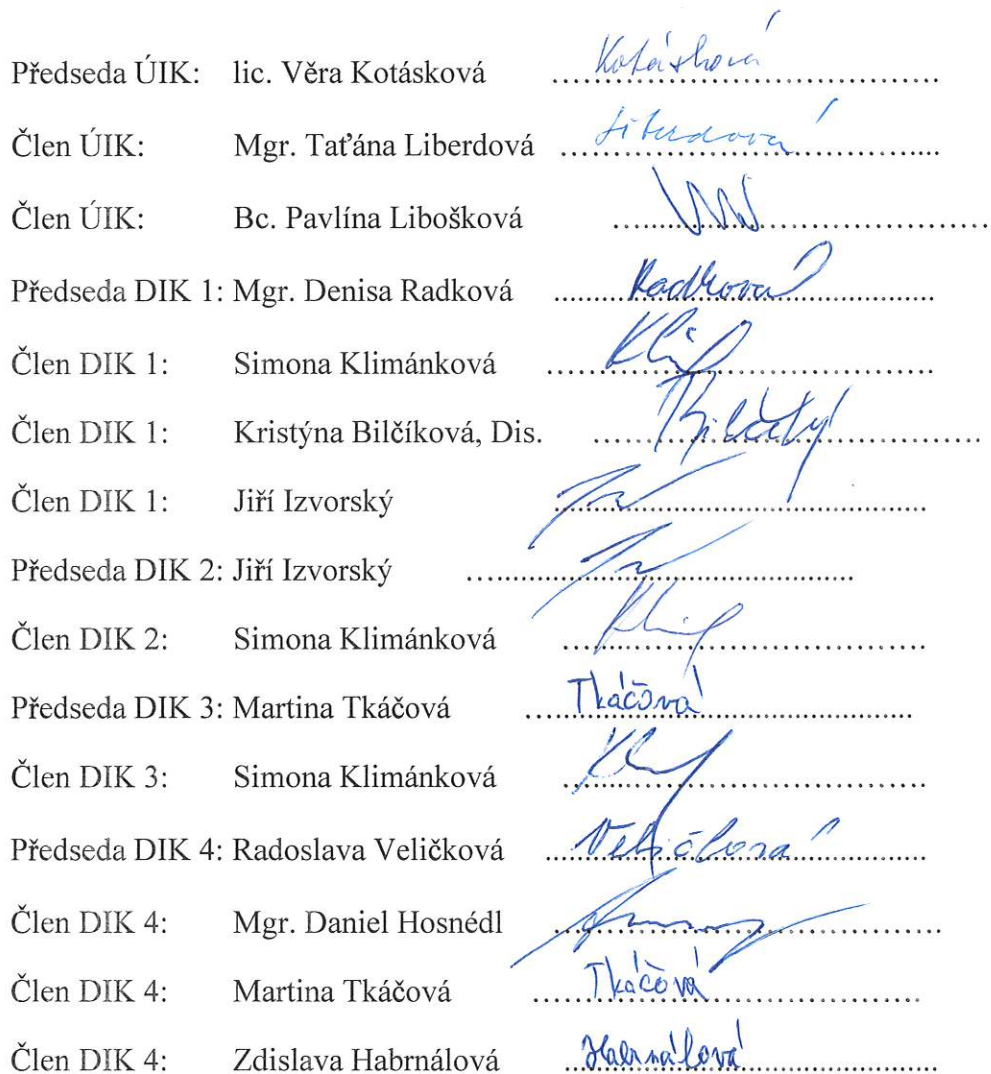 Předseda ÚIK: lic. Věra Kotásková ........................................ Kotásková
Člen ÚIK: Mgr. Taťána Liberdová ........................................ Liberdová
Člen ÚIK: Bc. Pavlína Libošková ........................................
Předseda DIK 1: Mgr. Denisa Radková ........................................ Radková
Člen DIK 1: Simona Klimánková ........................................
Člen DIK 1: Kristýna Bilčíková, Dis. ........................................
Člen DIK 1: Jiří Izvorský ........................................
Předseda DIK 2: Jiří Izvorský ........................................
Člen DIK 2: Simona Klimánková ........................................
Předseda DIK 3: Martina Tkáčová ........................................ Tkáčová
Člen DIK 3: Simona Klimánková ........................................
Předseda DIK 4: Radoslava Veličková ........................................ Veličková
Člen DIK 4: Mgr. Daniel Hosnédl ........................................
Člen DIK 4: Martina Tkáčová ........................................ Tkáčová
Člen DIK 4: Zdislava Habrnálová ........................................ Habrnálová